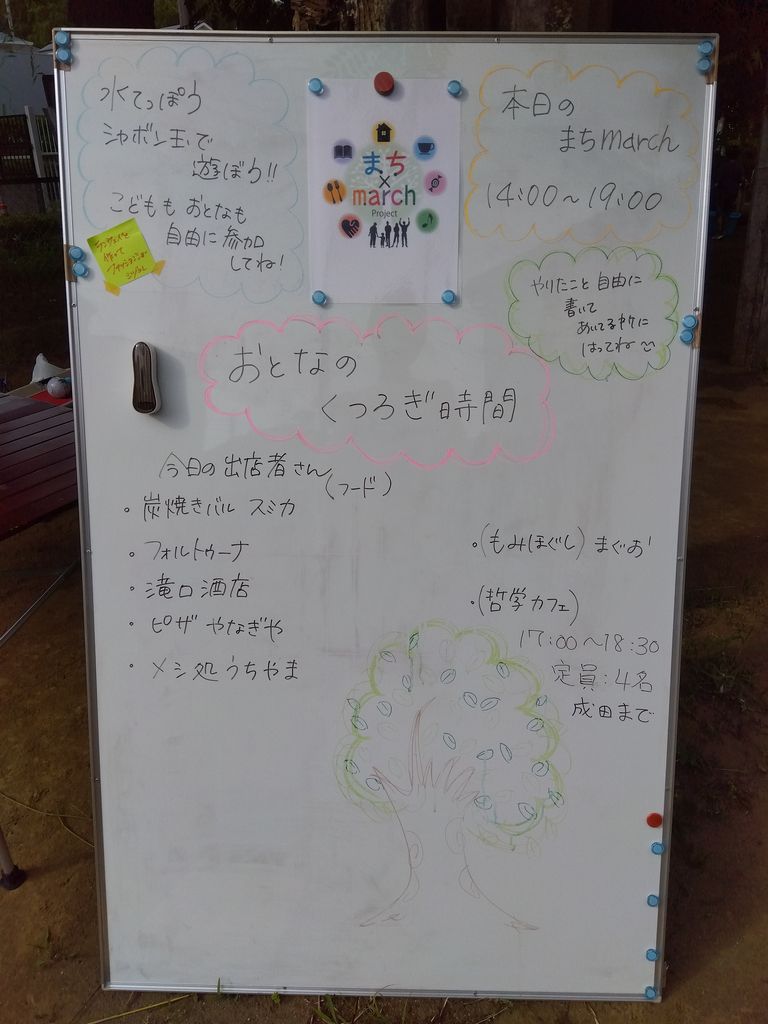 水てっぽう
シャボン玉で
遊ぼう!!
こどもも おとなも
自由に参加
してね!
まち
×
march
Project
本日の
まちmarch
14:00〜19:00
やりたこと自由に
書いて
あいてる所に
はってね
おとなの
くつろぎ時間
今日の出店者さん
(フード)
・炭焼きバル スミカ
・フォルトゥーナ
・滝口酒店
・ピザ やなぎや
・メシ処 うちやま
・(もみほぐし) まぐお
・(哲学カフェ)
17:00〜18:30
定員:4名
成田まで